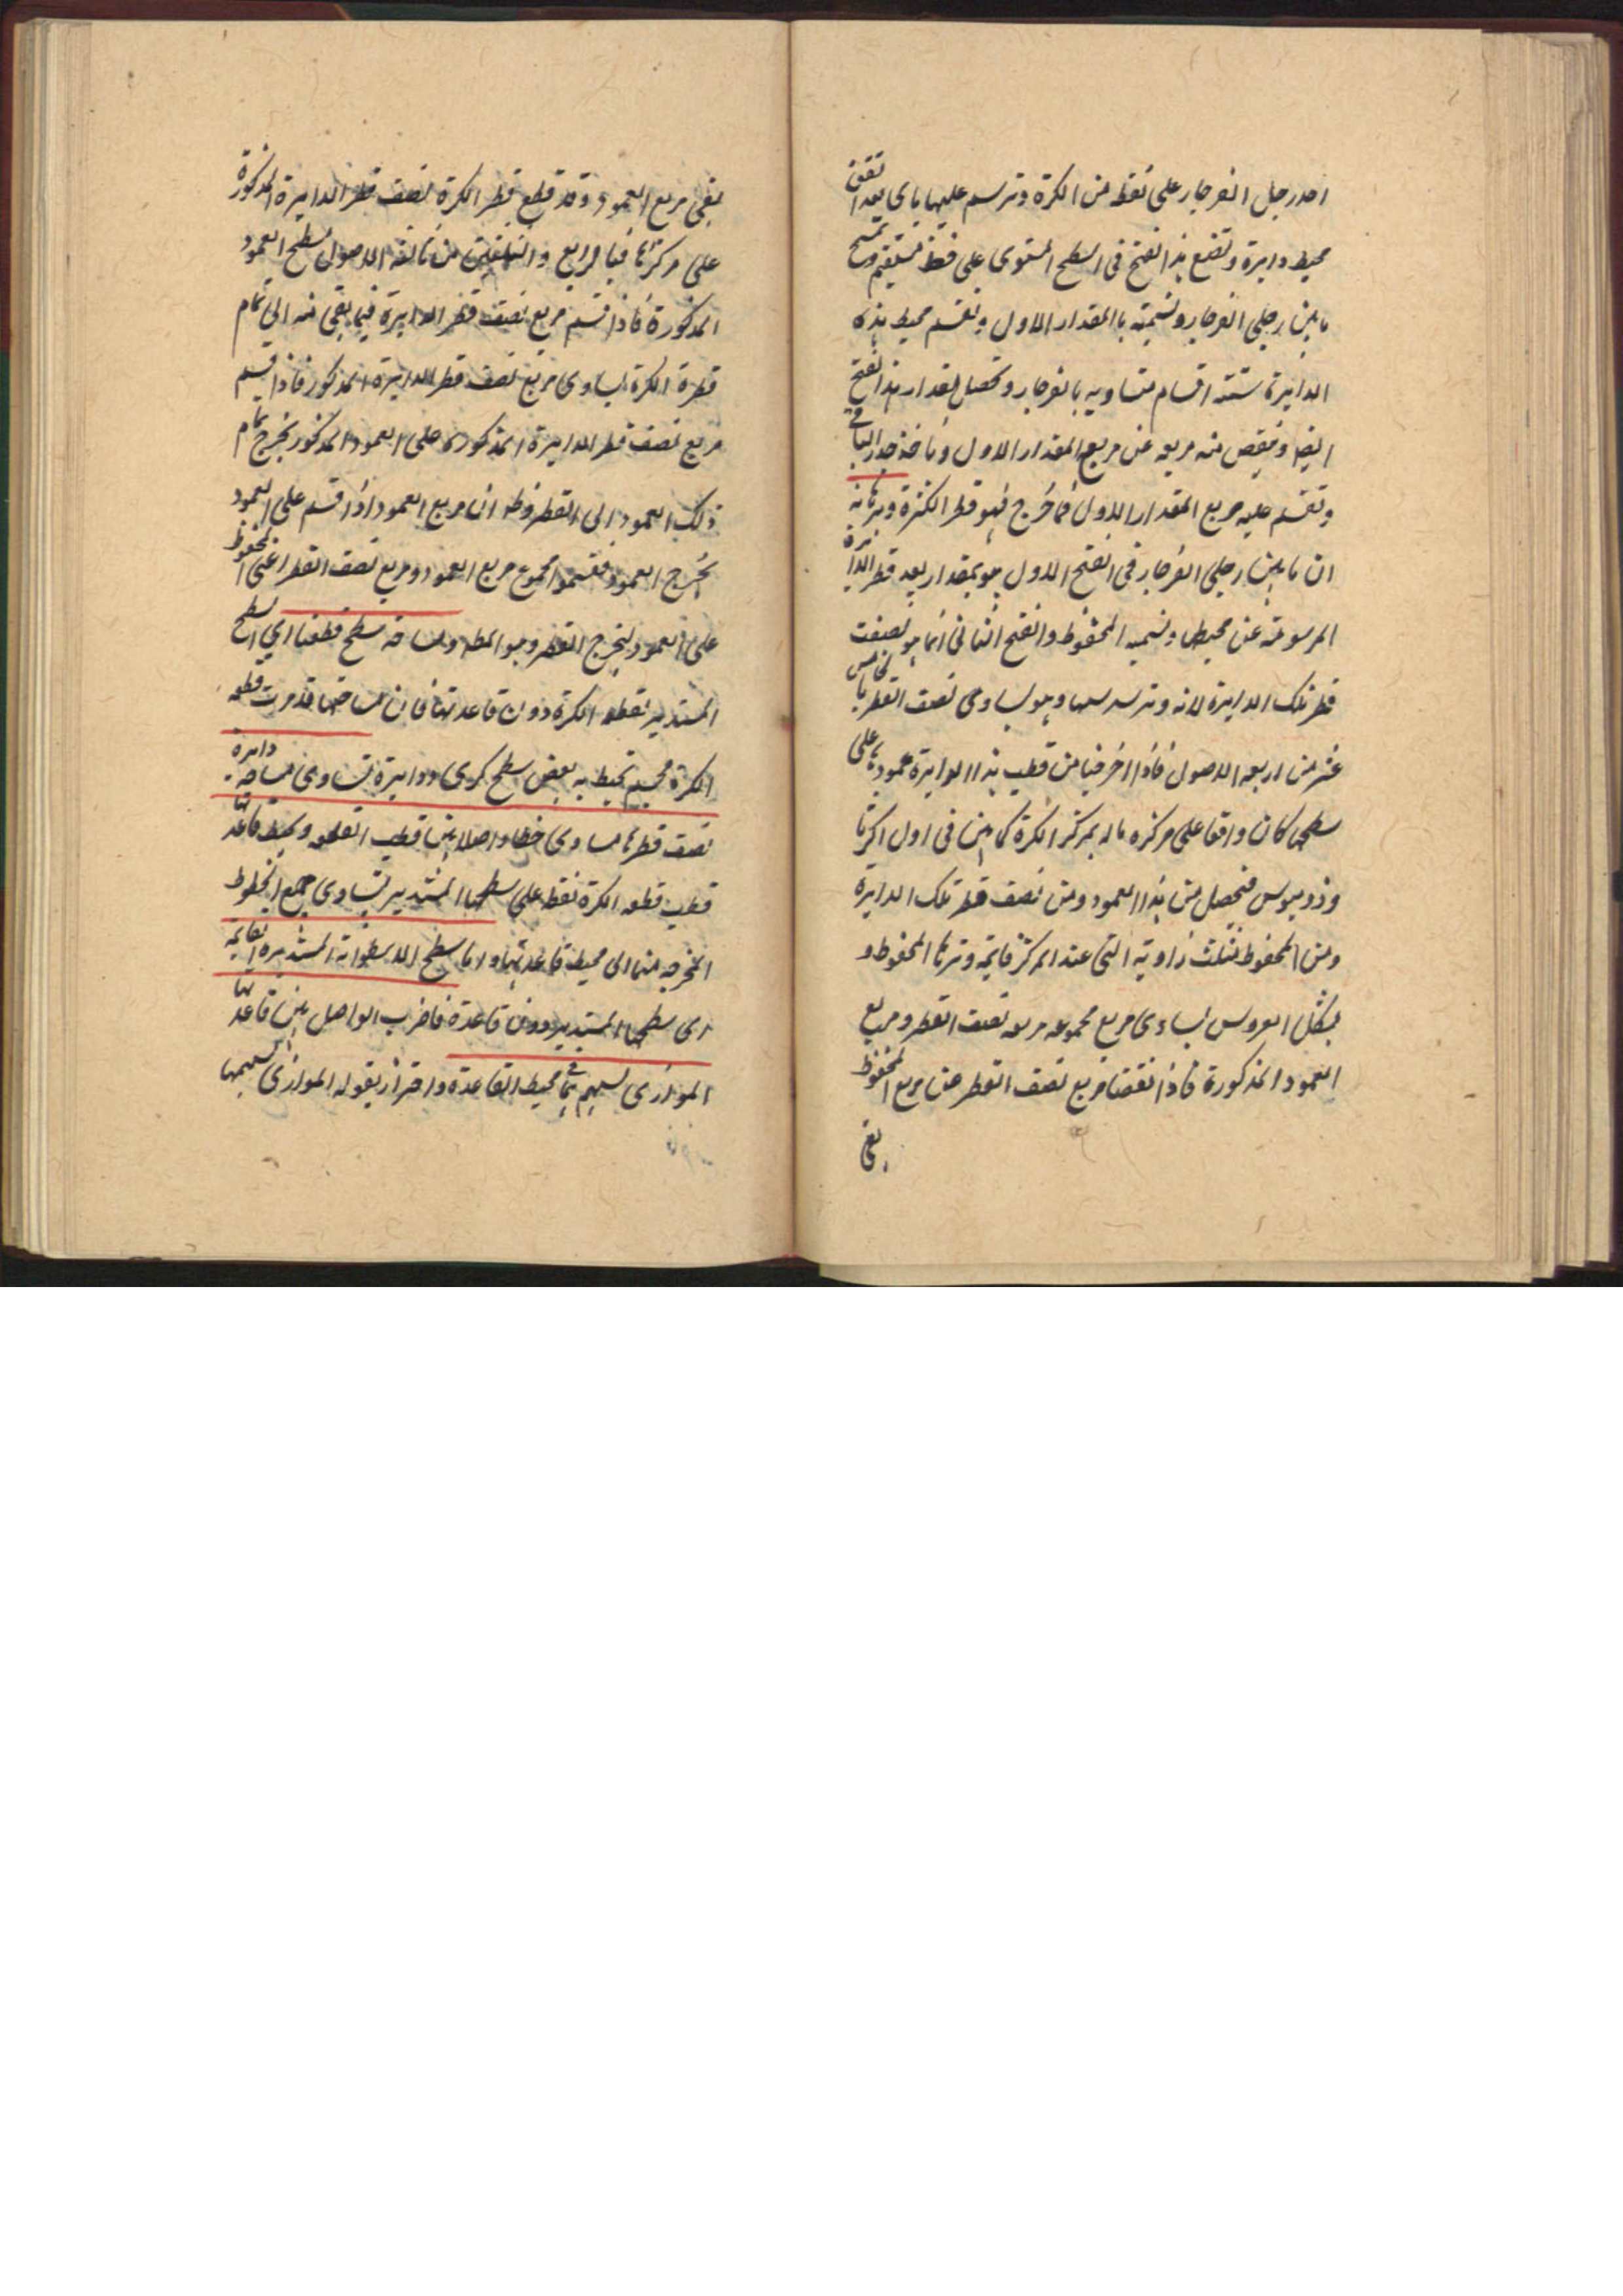 احد رجل الفرجار على نقطه من الكرة وترسم عليها باى بعد اتفق
محيط دايرة وتضع هذا الفتح فى السطح المستوى على خط مستقيم وتمسح
ما بين رجلى الفرجار وتسميته باالمقدار الاول وتقسم محيط هذه
الدايرة ستته اقسام متساويه بالفرجار وتحصل مقدار هذا الفتح
ايضا وينقص منه مربعه عن مربع المقدار الاول وتاخذ جذر الباقى
وتقسم عليه مربع المقدار الاول فما خرج فهو قطر الكرة وبرهانه
ان ما بين رجلى الفرجار فى الفتح الاول هو بمقدار بعد قطر الدايرة
المرسومة عن محيطها ونسميه المحفوظ والفتح الثانى انما هو نصف
قطر تلك الدايرة لانه وتر سدسها وهو يساوى نصف القطر بالخامس
عشر من اربعه الاصول فاذا اخرجنا من قطب هذا الدايرة عمودها على
سطحها كان واقعا على مركزه مارا بمركز الكرة كما بين فى اول اكر ثا
وذوسيوس فيحصل من هذا العمود ومن نصف قطر تلك الدايرة
ومن المحفوظ مثلث زاويته التى عند المركز قايمة وترها المحفوظ و
بشكل العروس يساوى مربع مجموعه مربعه نصف القطر ومربع
العمود المذكورة فاذا نقصنا مربع نصف القطر من مربع المحفوظ
بقى
بقى مربع العمود وقد قطع قطر الكرة نصف قطر الدايرة المذكورة
على مركزها فبالرابع والثلثين من ثالثه الاصول سطح العمود
المذكورة فاذا قسم مربع نصف قطر الدايرة فيما بقى منه الى تمام
قطرة الكرة يساوى مربع نصف قطر الدايرة المذكور فاذا قسم
مربع نصف قطر الدايرة المذكوره على العمود المذكور يخرج تمام
ذلك العمود الى القطر وظه ان مربع العمود اذا قسم على العمود
يخرج العمود فقسموا مجموع مربع العمود ومربع نصف القطر اعنى المحفوظ
على العمود ليخرج القطر وهو المطه ومساحه سطح قطعنا اى السطح
المستدير لقطعه الكرة دون قاعدتها فان مساحتها قد مرت قطعه
الكرة مجسم يحيط به بعض سطح كرى ودايرة تساوى مساحه دايرة
نصف قطرها مساوى خطا واصلا بين قطب القطعه ومحيط قاعدتها
قطب قطعه الكرة نقطه على سطحها المستدير يتساوى جميع الخطوط
المخرجه منها الى محيط قاعدتها واما سطح الاسطوانة المستديره القايمه
اى سطحها المستدير دون قاعدة فاضرب الواصل بين قاعدتها
الموازى لسهم بما فى محيط القاعدة واحترز بقوله الموازى لسهمها